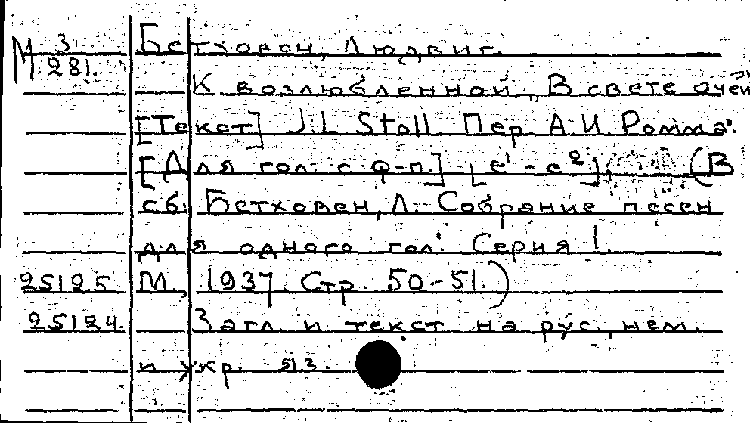 М 3/281. Бетховен, Людвиг.
К возлюбленной „В свете очей
[Текст] J.L. Stoll. Пер. А.И. Ромма.
[Для гол. с ф-п.] [e¹-e²]. (В
сб. Бетховен, Л. Собрание песен
для одного гол. Серия I.
25125 М., 1937. Стр. 50-51.)
25124. Загл. и текст на рус., нем.
и укр. яз.